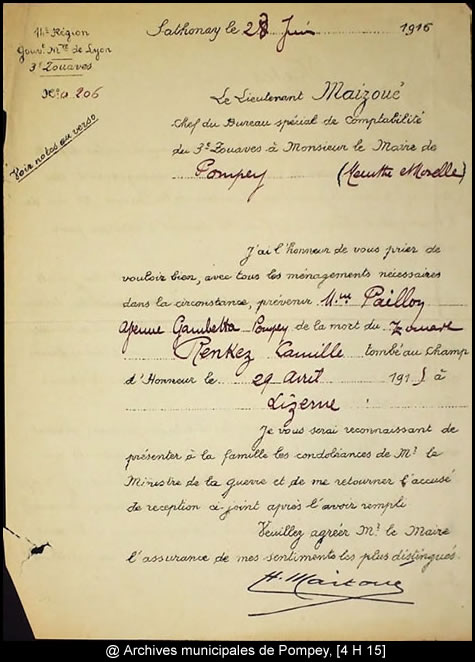 14e Région
Gouvt Mre de Lyon
3e Zouaves
No a 206
Voir notes au verso
Sathonay le 28 Juin 1916
Le Lieutenant Maizoué
Chef du Bureau spécial de Comptabilité
du 3e Zouaves à Monsieur le Maire de
Pompey (Meurthe et Moselle)
J'ai l'honneur de vous prier de
vouloir bien, avec tous les ménagements nécessaires
dans la circonstance, prévenir Mme Pailloy
Avenue Gambetta Pompey de la mort du Zouave
Renkez Camille tombé au Champ
d'Honneur le 29 Avril 1915 à
Lizerne
Je vous serai reconnaissant de
présenter à la famille les condoléances de Mr le
Ministre de la guerre et de me retourner l'accusé
de reception ci joint après l'avoir rempli
Veuillez agréer Mr le Maire
l'assurance de mes sentiments les plus distingués
H. Maizoué
@ Archives municipales de Pompey, [4 H 15]